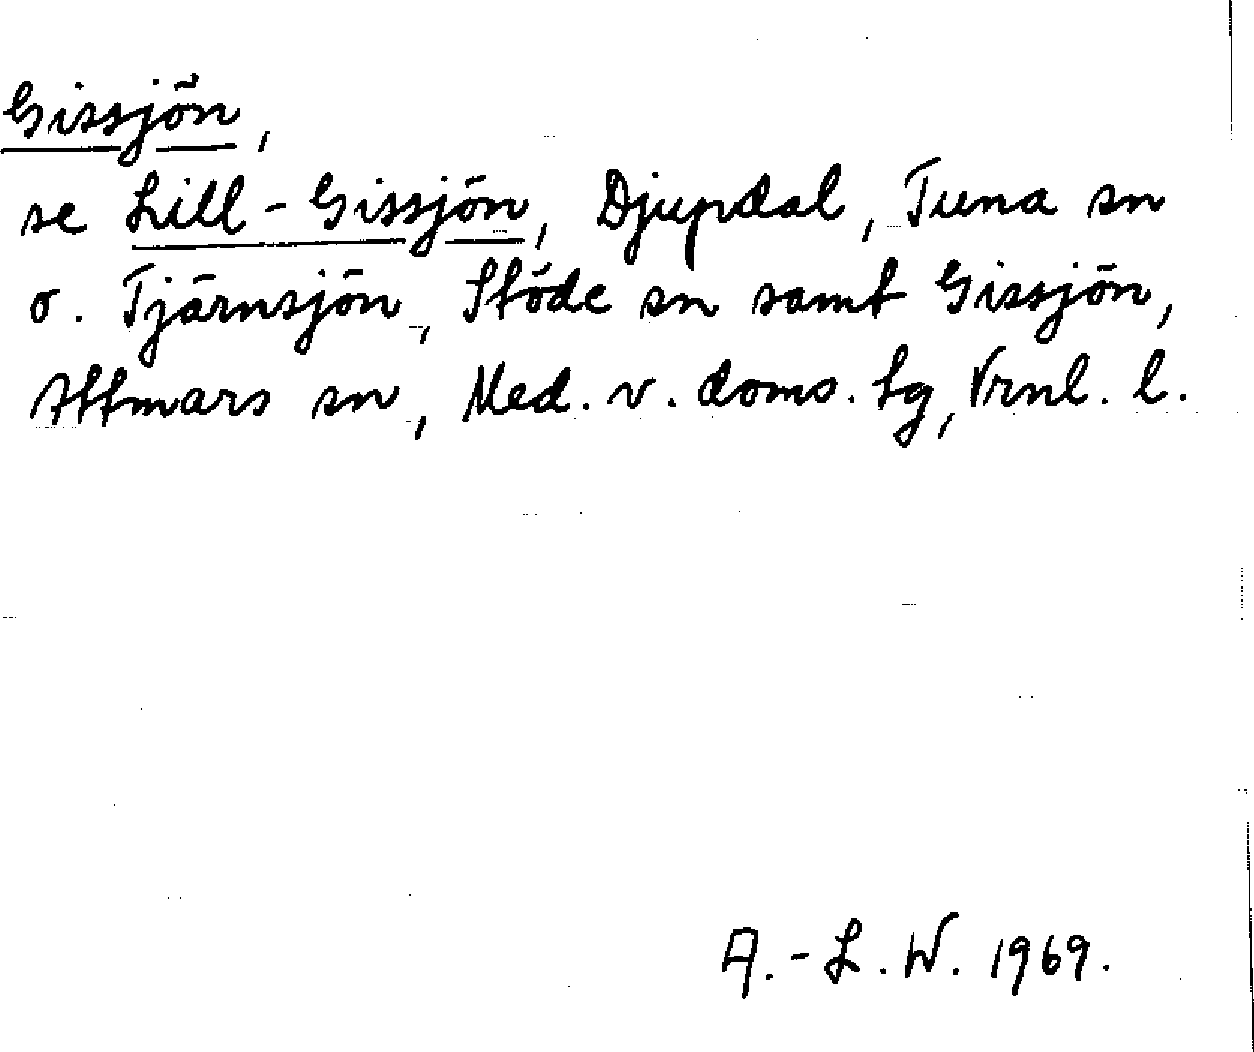 Gissjön,
se Lill-Gissjön, Djupdal, Tuna sn
o. Tjärnsjön, Stöde sn samt Gissjön,
Attmars sn, Med. v. doms. tg, Vrnl. l.
A.-L. W. 1969.